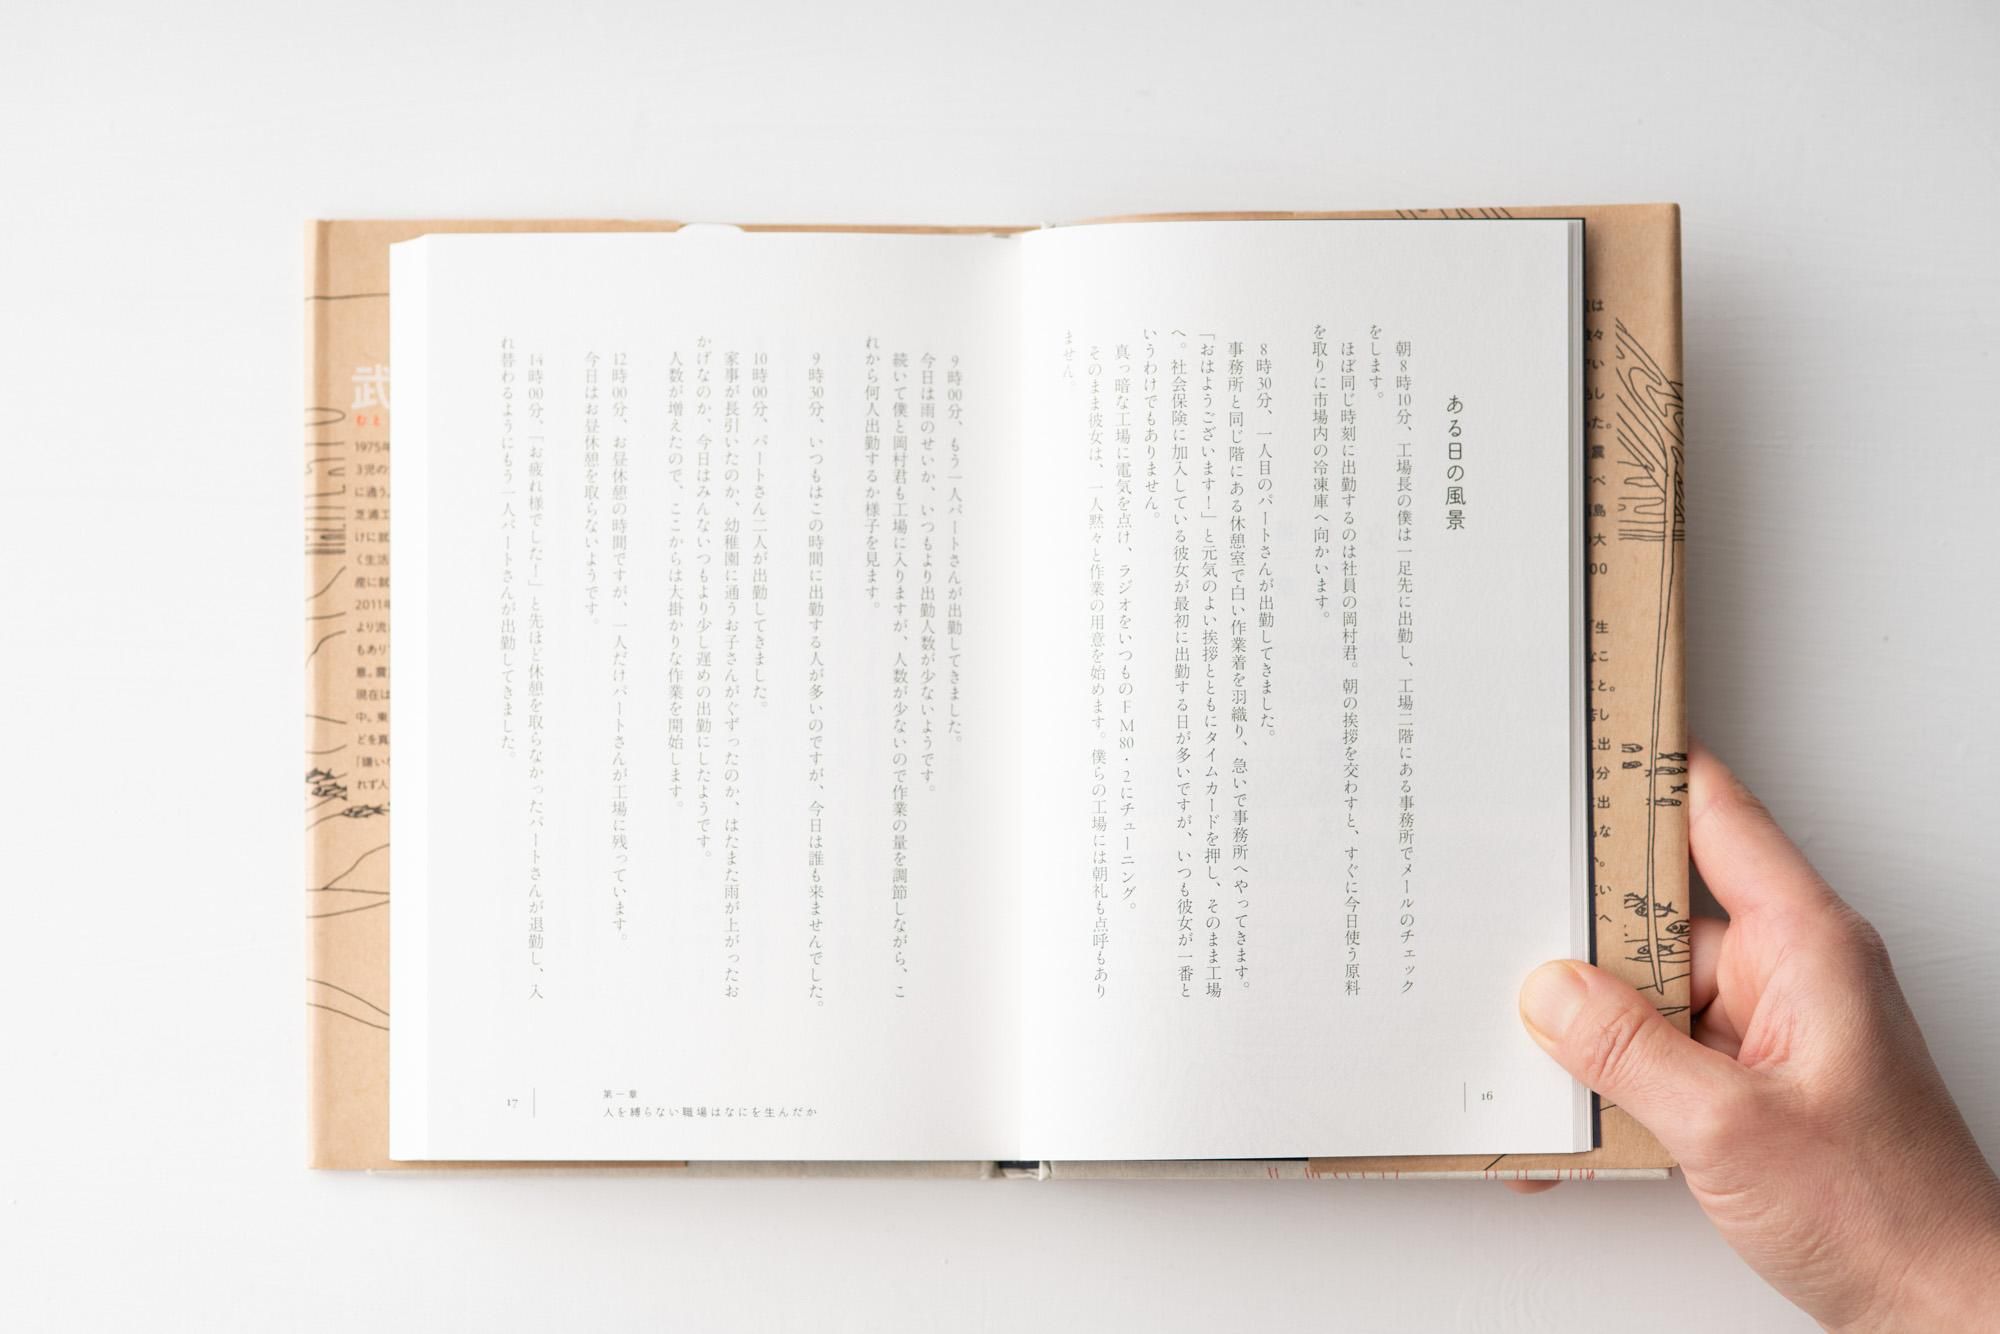 ある日の風景
朝8時10分、工場長の僕は一足先に出勤し、工場二階にある事務所でメールのチェック
をします。
ほぼ同じ時刻に出勤するのは社員の岡村君。朝の挨拶を交わすと、すぐに今日使う原料
を取りに市場内の冷凍庫へ向かいます。
8時30分、一人目のパートさんが出勤してきました。
事務所と同じ階にある休憩室で白い作業着を羽織り、急いで事務所へやってきます。
「おはようございます！」と元気のよい挨拶とともにタイムカードを押し、そのまま工場
へ。社会保険に加入している彼女が最初に出勤する日が多いですが、いつも彼女が一番と
いうわけでもありません。
真っ暗な工場に電気を点け、ラジオをいつものFM80・2にチューニング。
そのまま彼女は、一人黙々と作業の用意を始めます。僕らの工場には朝礼も点呼もあり
ません。
16
9時00分、もう一人パートさんが出勤してきました。
今日は雨のせいか、いつもより出勤人数が少ないようです。
続いて僕と岡村君も工場に入りますが、人数が少ないので作業の量を調節しながら、こ
れから何人出勤するか様子を見ます。
9時30分、いつもはこの時間に出勤する人が多いのですが、今日は誰も来ませんでした。
10時00分、パートさん二人が出勤してきました。
家事が長引いたのか、幼稚園に通うお子さんがぐずったのか、はたまた雨が上がったお
かげなのか、今日はみんないつもより少し遅めの出勤にしたようです。
人数が増えたので、ここからは大掛かりな作業を開始します。
12時00分、お昼休憩の時間ですが、一人だけパートさんが工場に残っています。
今日はお昼休憩を取らないようです。
14時00分、「お疲れ様でした！」と先ほど休憩を取らなかったパートさんが退勤し、入
れ替わるようにもう一人パートさんが出勤してきました。
第一章
人を縛らない職場はなにを生んだか
17
武
むと
1975年
3児の
に通う。
芝浦工
けに就
く生活
産に就
2011年
より流
もあり
意。震
現在は
中。東
どを真
「嫌い
れず人